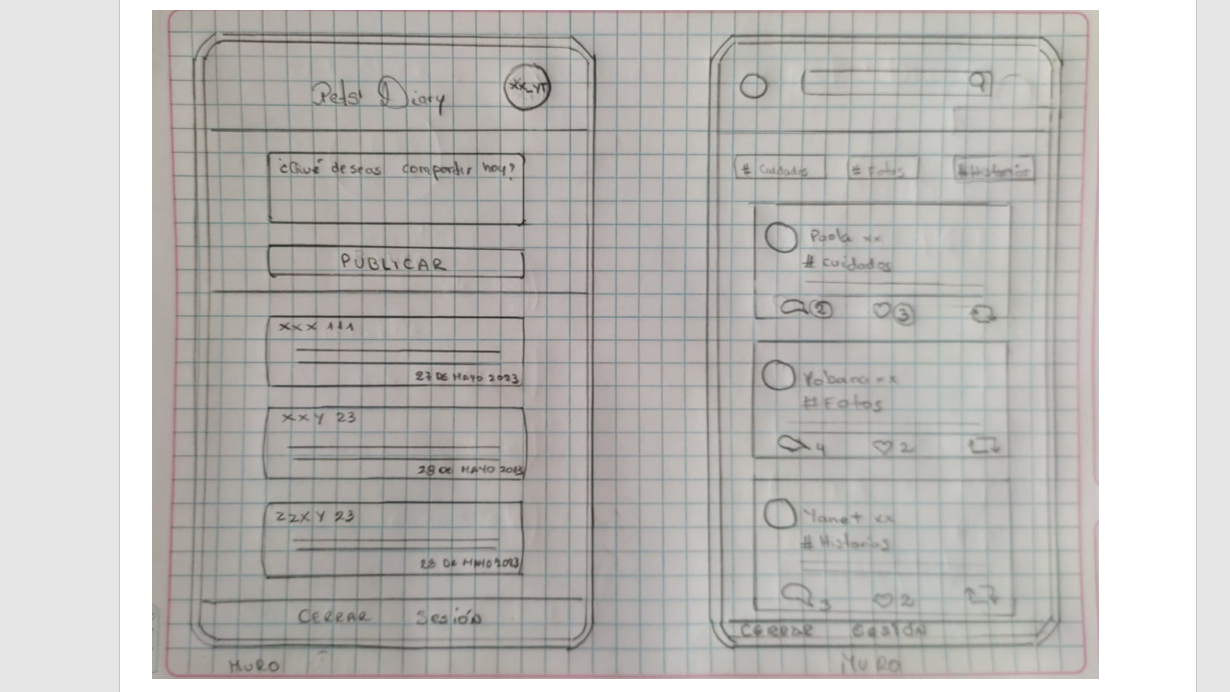 Pets' Diary
xx_YT
¿Qué deseas compartir hoy?
PUBLICAR
xxx 111
27 DE MAYO 2023
xxY 23
28 DE MAYO 2023
ZZXY 23
28 DE MAYO 2023
CERRAR Sesión
MURO
# Cuidados
# Fotos
# Historias
Paola xx
# cuidados
2
3
Yobana xx
# Fotos
4
2
Yanet xx
# Historias
3
2
CERRAR SESIÓN
MURO